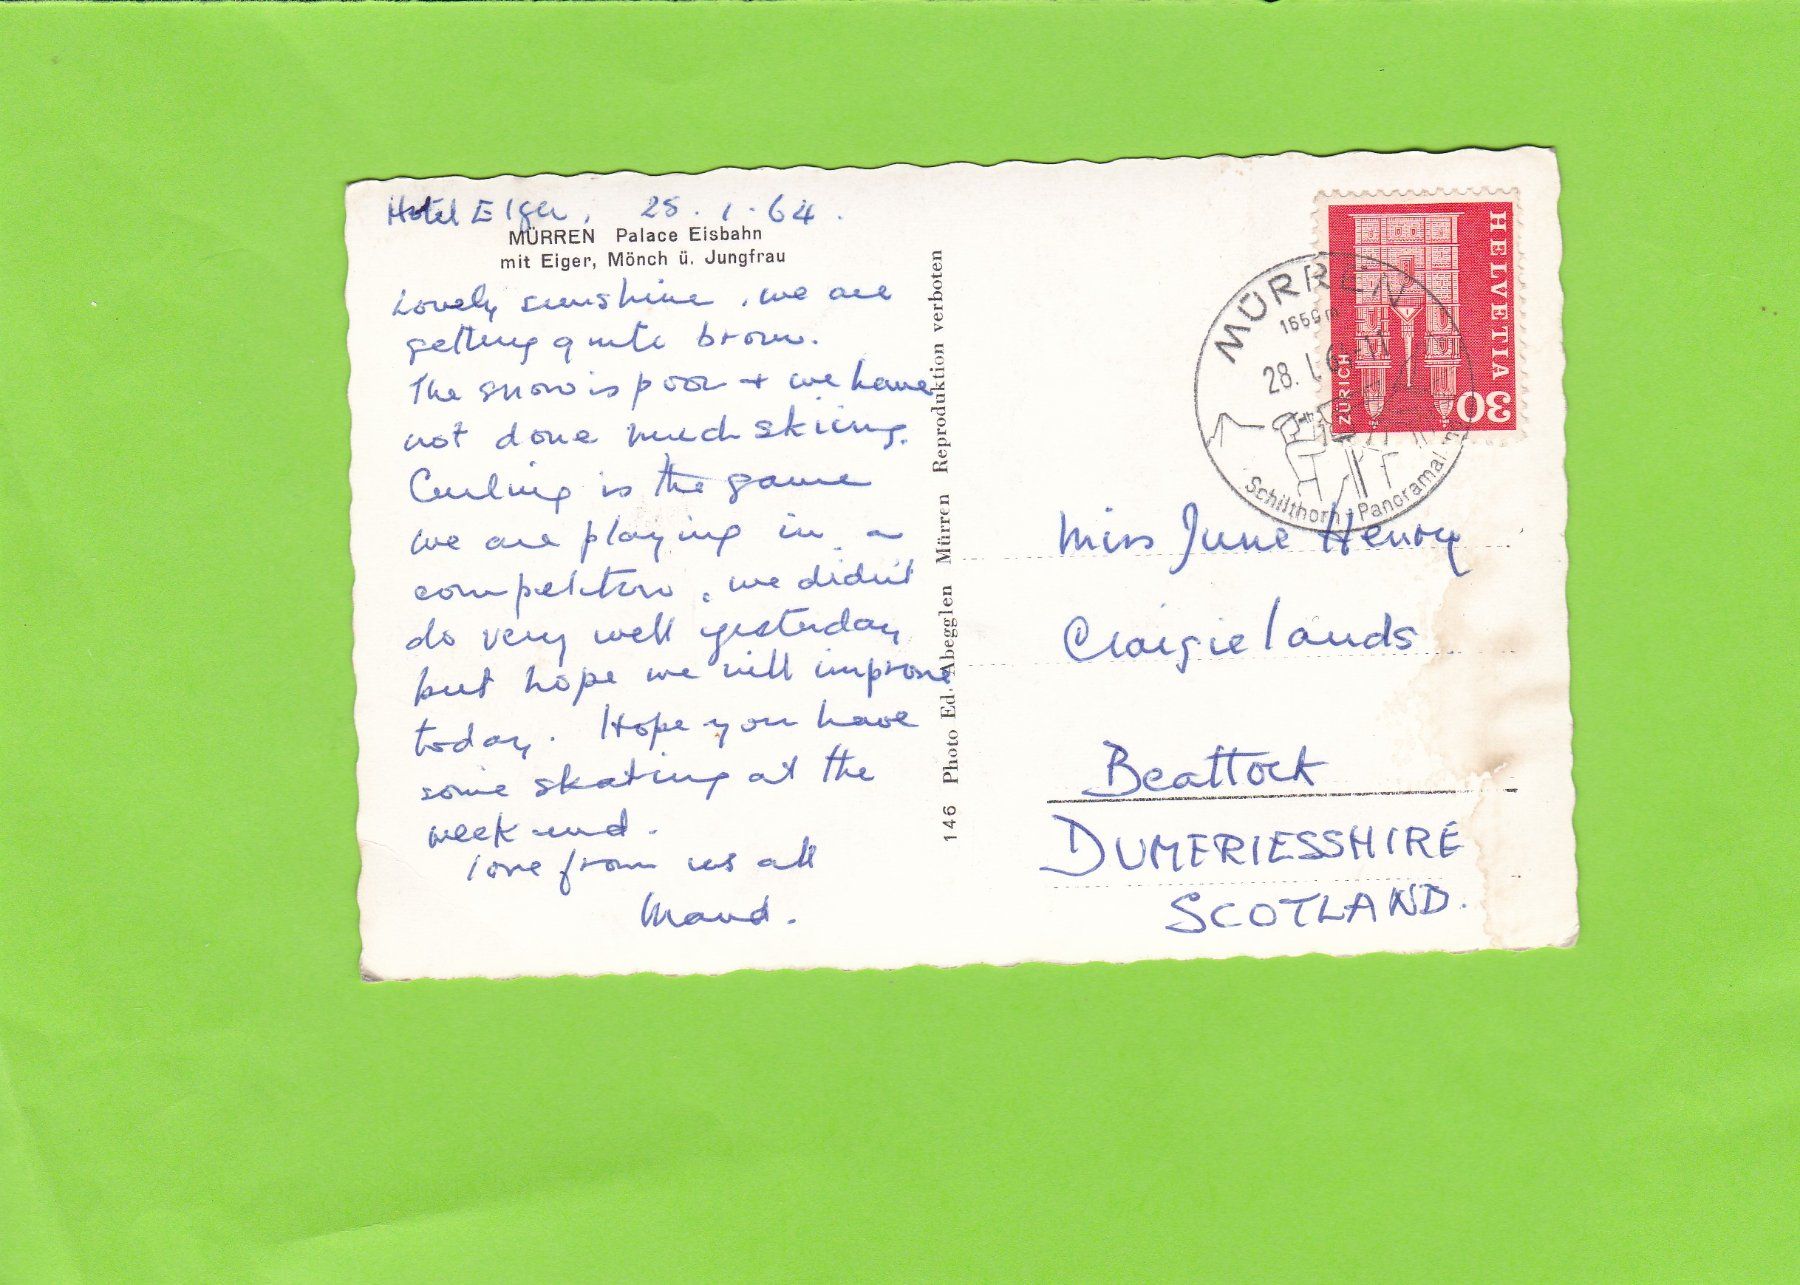 Hotel Eiger, 28.1.64.
MÜRREN Palace Eisbahn
mit Eiger, Mönch ü. Jungfrau
Lovely sunshine, we are
getting quite brown.
The snow is poor + we have
not done much skiing.
Curling is the game
we are playing in a
competition, we didn't
do very well yesterday
but hope we will improve
today. Hope you have
some skating at the
week-end.
love from us all
Maud.
146 Photo Ed. Abegglen Mürren Reproduktion verboten
HELVETIA
30
ZÜRICH
MÜRREN
1650m
28. I. 6
Schilthorn + Panorama
Miss June Henry
Craigielands
Beattock
DUMFRIESSHIRE
SCOTLAND.